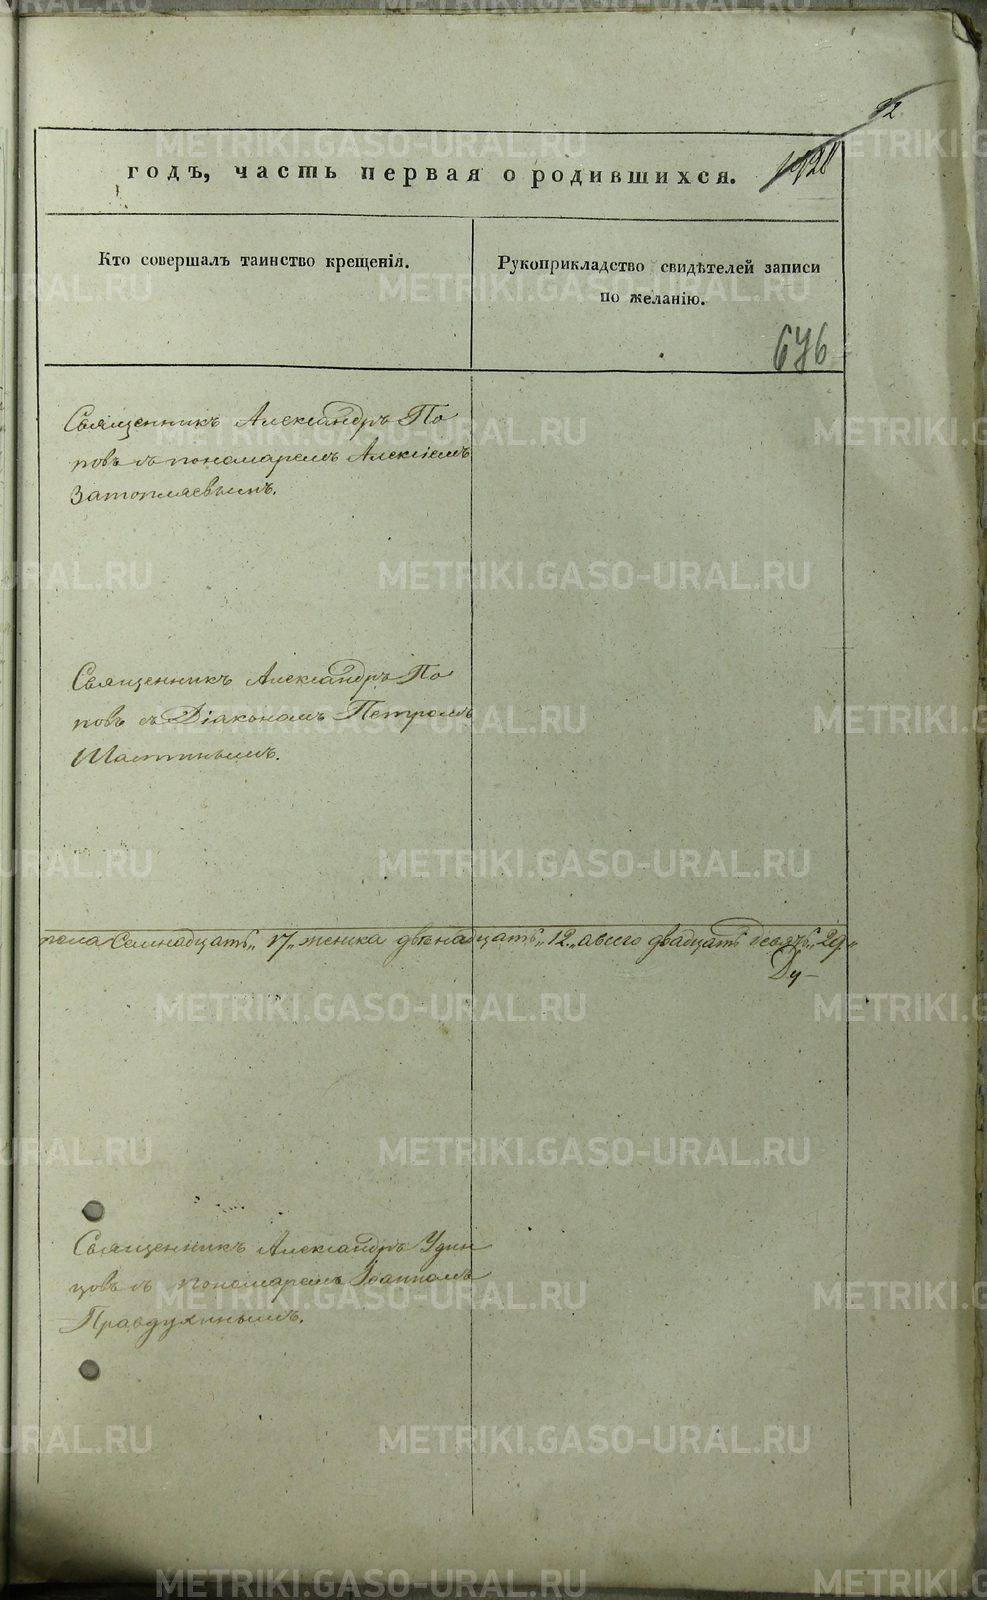 92
годъ, часть первая о родившихся.
Кто совершалъ таинство крещенія.
Рукоприкладство свидѣтелей записи
по желанію.
676
Священникъ Александръ По
повъ съ пономаремъ Алексіемъ
Затопляевымъ.
Священникъ Александръ По
повъ съ Діакономъ Петромъ
Шастинымъ.
пола Семнадцать „17„ женска двѣнадцать „12„ а всего двадцать девять „29„
Священникъ Александръ Удин
цовъ съ пономаремъ Іоанномъ
Правдухинымъ.
METRIKI.GASO-URAL.RU